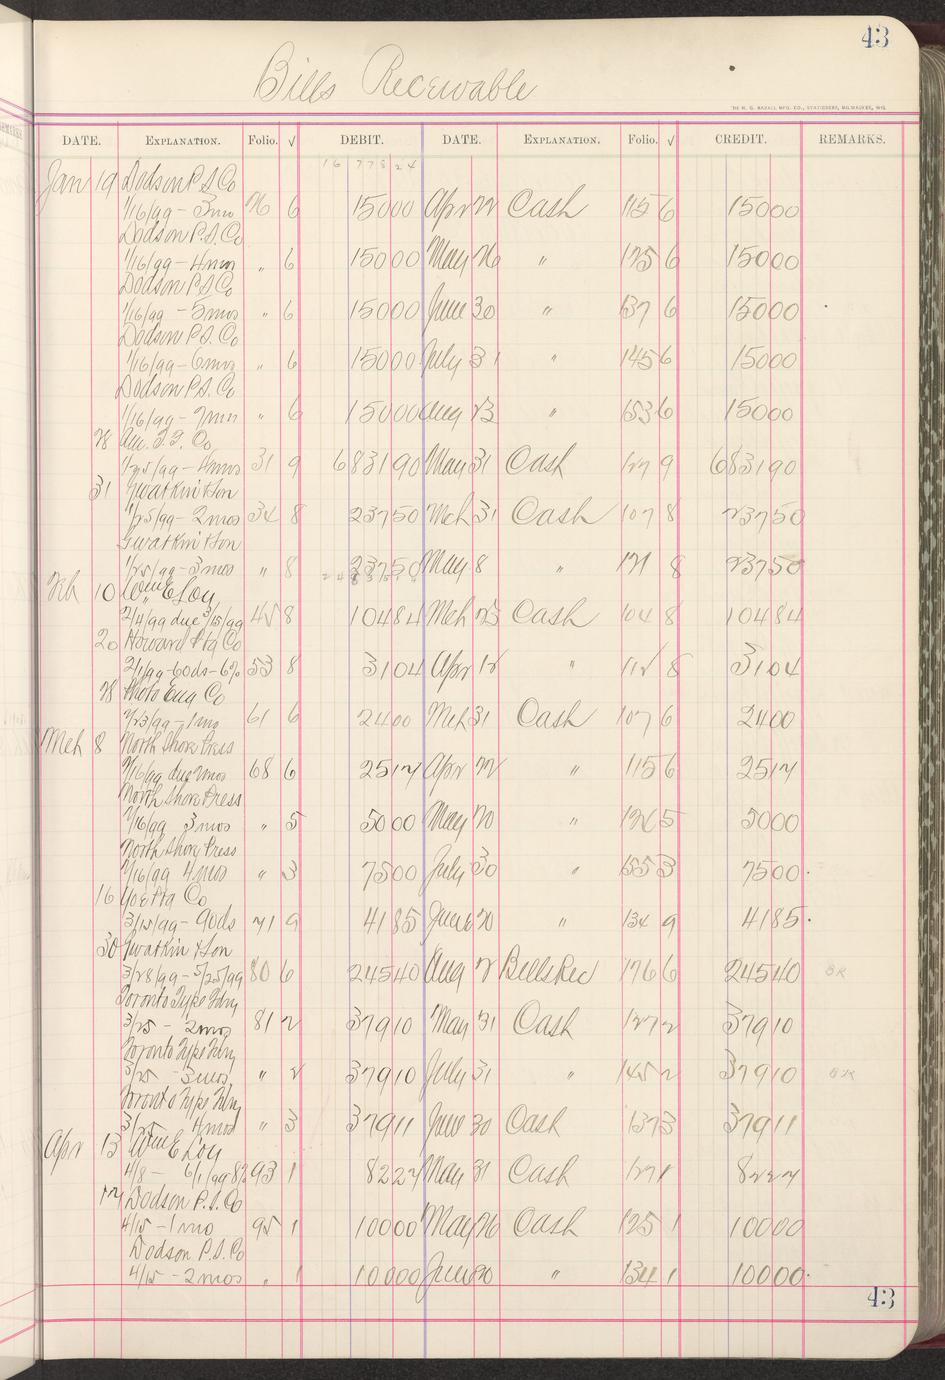 43
Bills Receivable
THE H. G. RAZALL MFG. CO., STATIONERS, MILWAUKEE, WIS.
DATE. EXPLANATION. Folio. √ DEBIT. DATE. EXPLANATION. Folio. √ CREDIT. REMARKS.
16 778 24
Jan 19 Dodson P. S. Co
1/16/99 - 3mo 26 6 15000 Apr 22 Cash 115 6 15000
Dodson P. S. Co
1/16/99 - 4mos " 6 15000 May 26 " 125 6 15000
Dodson P S Co
1/16/99 - 5mos " 6 15000 June 30 " 137 6 15000
Dodson P. S. Co
1/16/99 - 6mos " 6 15000 July 31 " 145 6 15000
Dodson P. S. Co
1/16/99 - 7mos " 6 15000 Aug 23 " 153 6 15000
28 Am. T. F. Co
1/25/99 - 4mos 31 9 683190 May 31 Cash 127 9 683190
31 Gwatkin & Son
1/25/99 - 2mos 34 8 23750 Mch 31 Cash 107 8 23750
Gwatkin & Son
1/25/99 - 3mos " 8 23750 May 8 121 8 23750
Feb 10 Wm E Loy
2/4/99 due 3/15/99 45 8 10484 Mch 23 Cash 104 8 10484
20 Howard Ptg Co
2/1/99 - 60ds - 6% 53 8 3104 Apr 12 " 112 8 3104
28 Photo Eng Co
2/23/99 - 1mo 61 6 2400 Mch 31 Cash 107 6 2400
Mch 8 North Shore Press
2/16/99 due 2mos 68 6 2517 Apr 22 " 115 6 2517
North Shore Press
2/16/99 3mos " 5 5000 May 20 " 126 5 5000
North Shore Press
2/16/99 4mos " 3 7500 July 30 " 155 3 7500
16 Ptg Co
3/15/99 - 90ds 71 9 4185 June 20 " 134 9 4185
30 Gwatkin & Son
3/28/99 - 5/25/99 80 6 24540 Aug 2 Bills Rec 176 6 24540 BR
Toronto Type Fdry
3/25 - 2mos 81 2 37910 May 31 Cash 127 2 37910
Toronto Type Fdry
3/25 - 3mos, " 2 37910 July 31 " 145 2 37910 BR
Toronto Type Fdry
3/25 4mos " 3 37911 June 30 Cash 137 3 37911
Apr 13 Wm E Loy
4/8 - 6/1/99 8% 93 1 8227 May 31 Cash 127 1 8227
17 Dodson P. S. Co
4/15 - 1mo 95 1 10000 May 26 Cash 125 1 10000
Dodson P. S. Co
4/15 - 2mos " 1 10000 June 20 " 134 1 10000
43